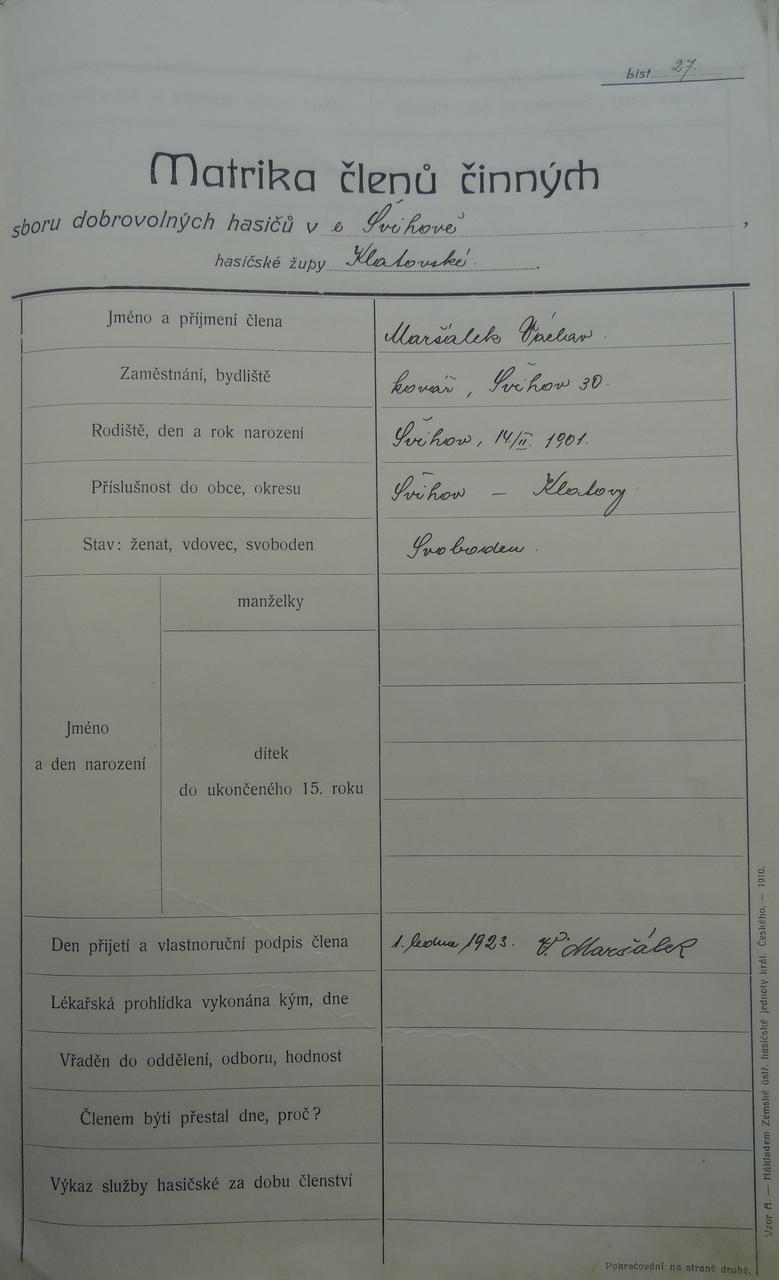 List 27.
Matrika členů činných
sboru dobrovolných hasičů v e Švihově,
hasičské župy Klatovské.
Jméno a příjmení člena Maršálek Václav.
Zaměstnání, bydliště kovář, Švihov 30.
Rodiště, den a rok narození Švihov, 14/II. 1901.
Příslušnost do obce, okresu Švihov – Klatovy
Stav: ženat, vdovec, svoboden Svoboden.
manželky
Jméno
a den narození
dítek
do ukončeného 15. roku
Den přijetí a vlastnoruční podpis člena 1. ledna 1923. V. Maršálek
Lékařská prohlídka vykonána kým, dne
Vřaděn do oddělení, odboru, hodnost
Členem býti přestal dne, proč?
Výkaz služby hasičské za dobu členství
Vzor A. — Nákladem Zemské ústř. hasičské jednoty král. Českého. — 1910.
Pokračování na straně druhé.